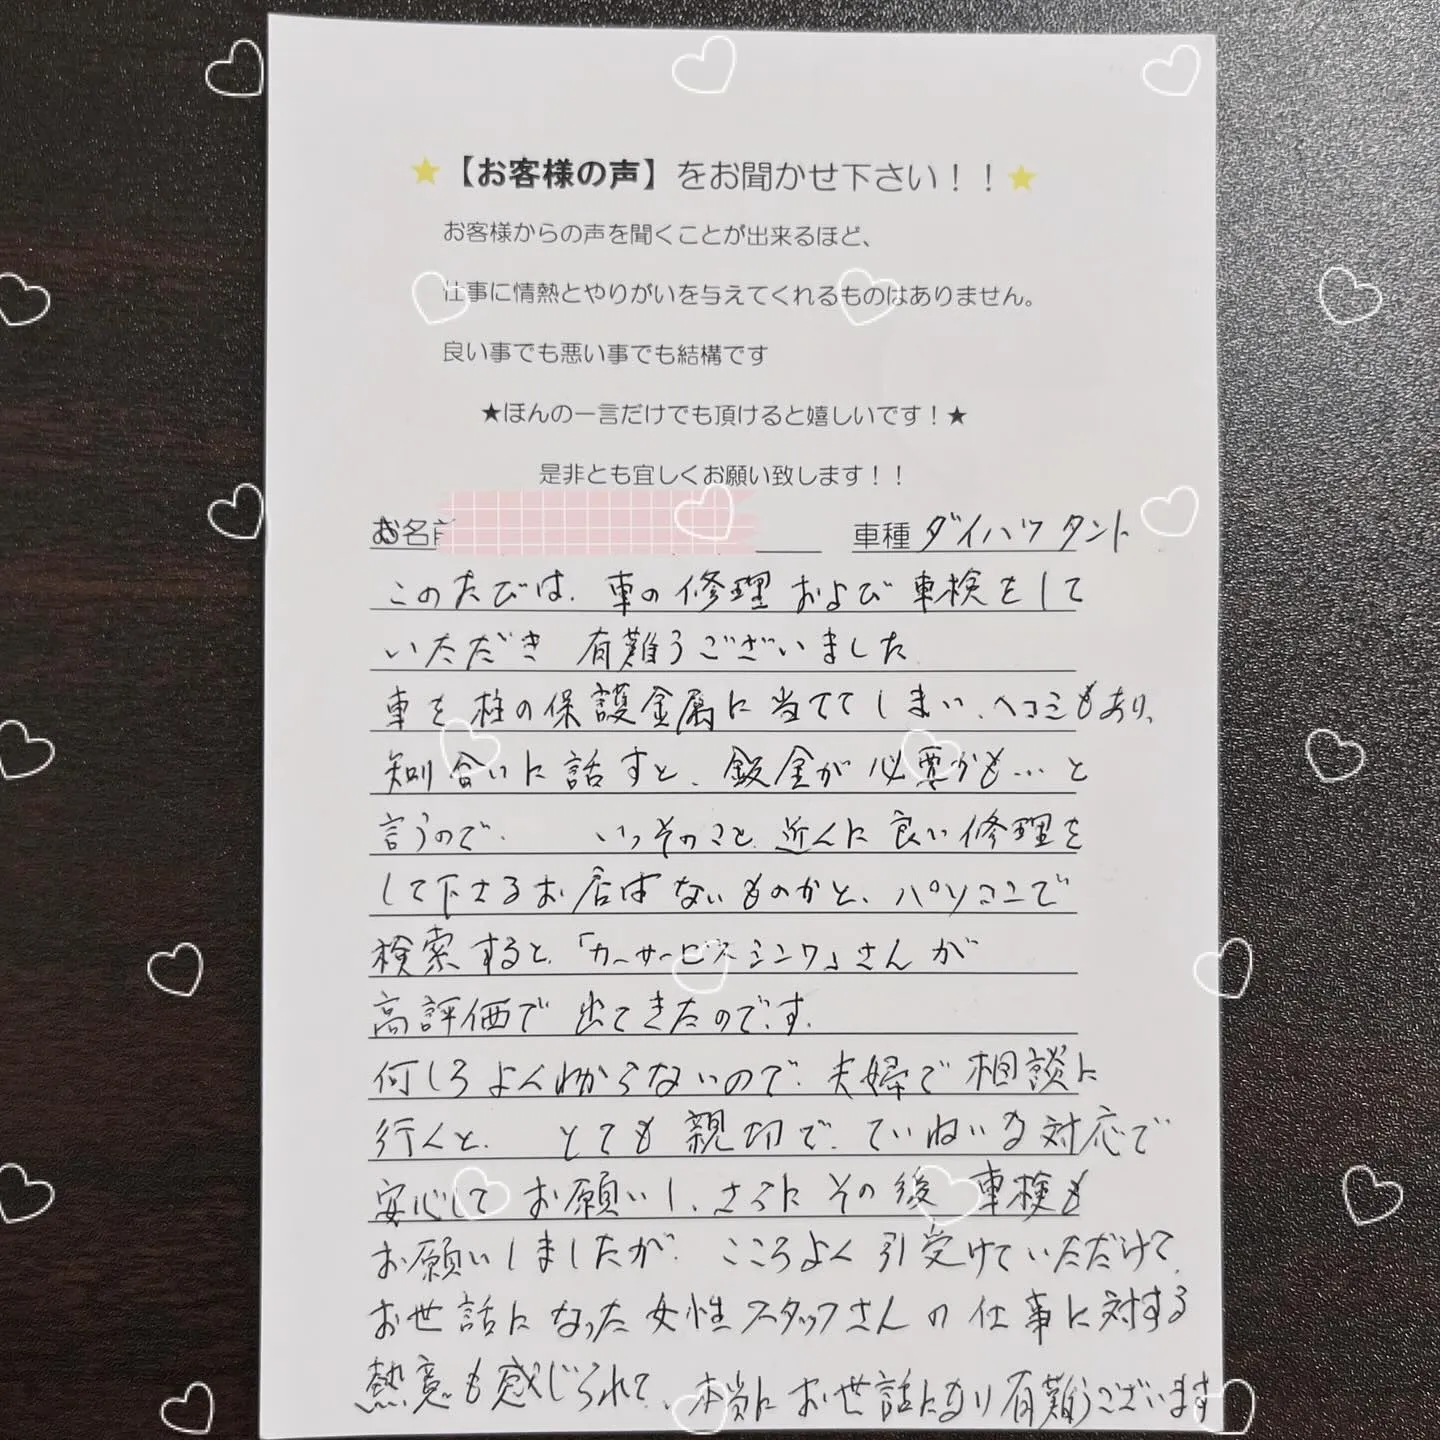 ★【お客様の声】をお聞かせ下さい！！★
お客様からの声を聞くことが出来るほど、
仕事に情熱とやりがいを与えてくれるものはありません。
良い事でも悪い事でも結構です
★ほんの一言だけでも頂けると嬉しいです！★
是非とも宜しくお願い致します！！
お名前 車種 ダイハツ タント
このたびは、車の修理 および 車検をして
いただき 有難うございました
車を柱の保護金属に当ててしまい、ヘコミもあり、
知り合いに話すと、鈑金が必要かも…と
言うので、 いっそのこと、近くに良い修理を
して下さるお店はないものかと、パソコンで
検索すると、「カーサービスシンワ」さんが
高評価で出てきたのです。
何しろよくわからないので、夫婦で相談に
行くと、 とても親切で、ていねいな対応で
安心してお願いし、さらにその後車検も
お願いしましたが、こころよく引受けていただけて、
お世話になった女性スタッフさんの仕事に対する
熱意も感じられて、本当にお世話になり有難うございます